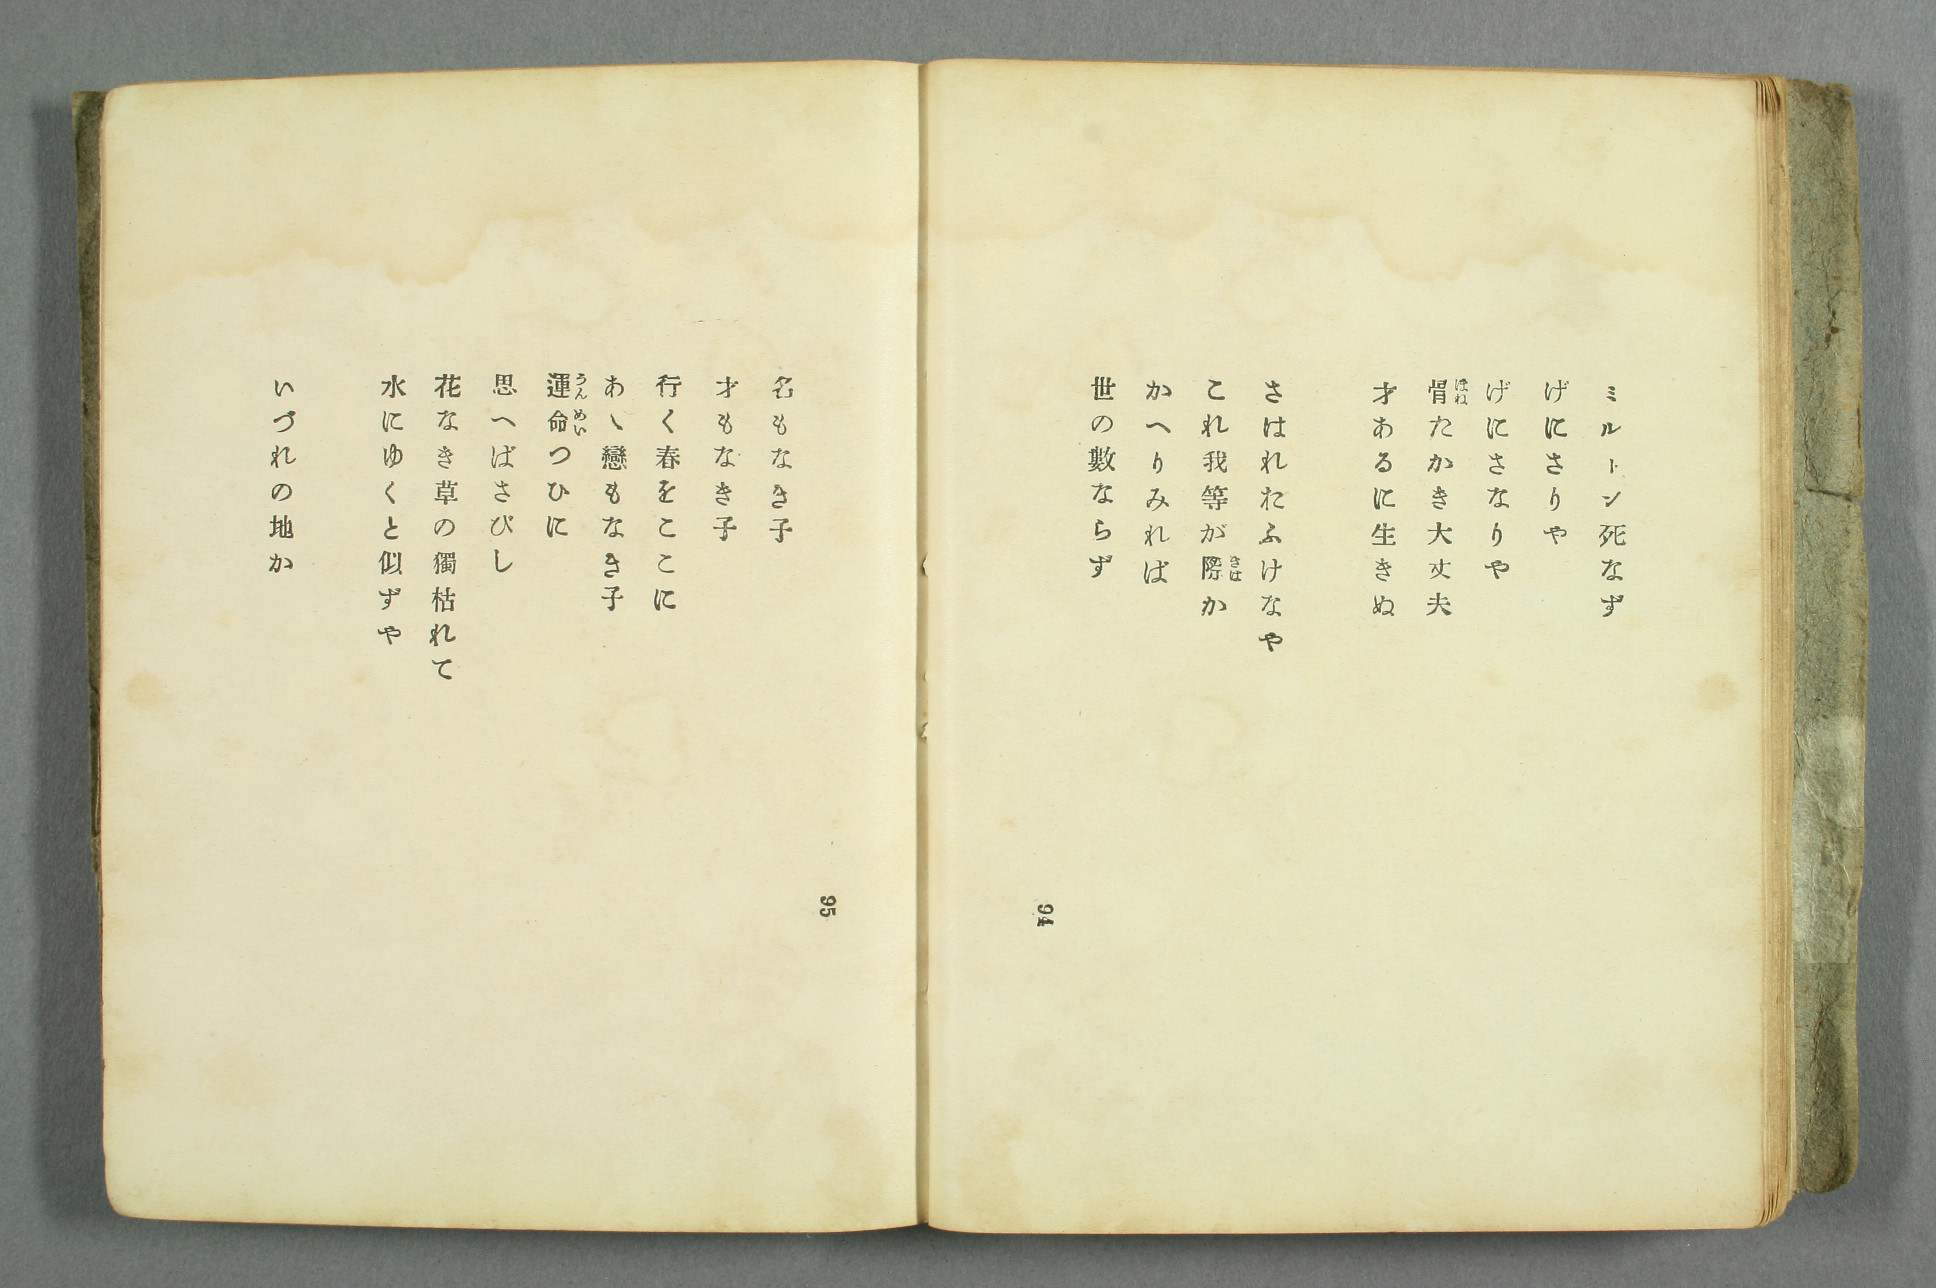 ミルトン死なず
げにさりや
げにさなりや
骨たかき大丈夫
才あるに生きぬ
さはれおふけなや
これ我等が際か
かへりみれば
世の數ならず
94
名もなき子
才もなき子
行く春をここに
あゝ戀もなき子
運命つひに
思へばさびし
花なき草の獨枯れて
水にゆくと似ずや
いづれの地か
95
ほね
きは
うんめい